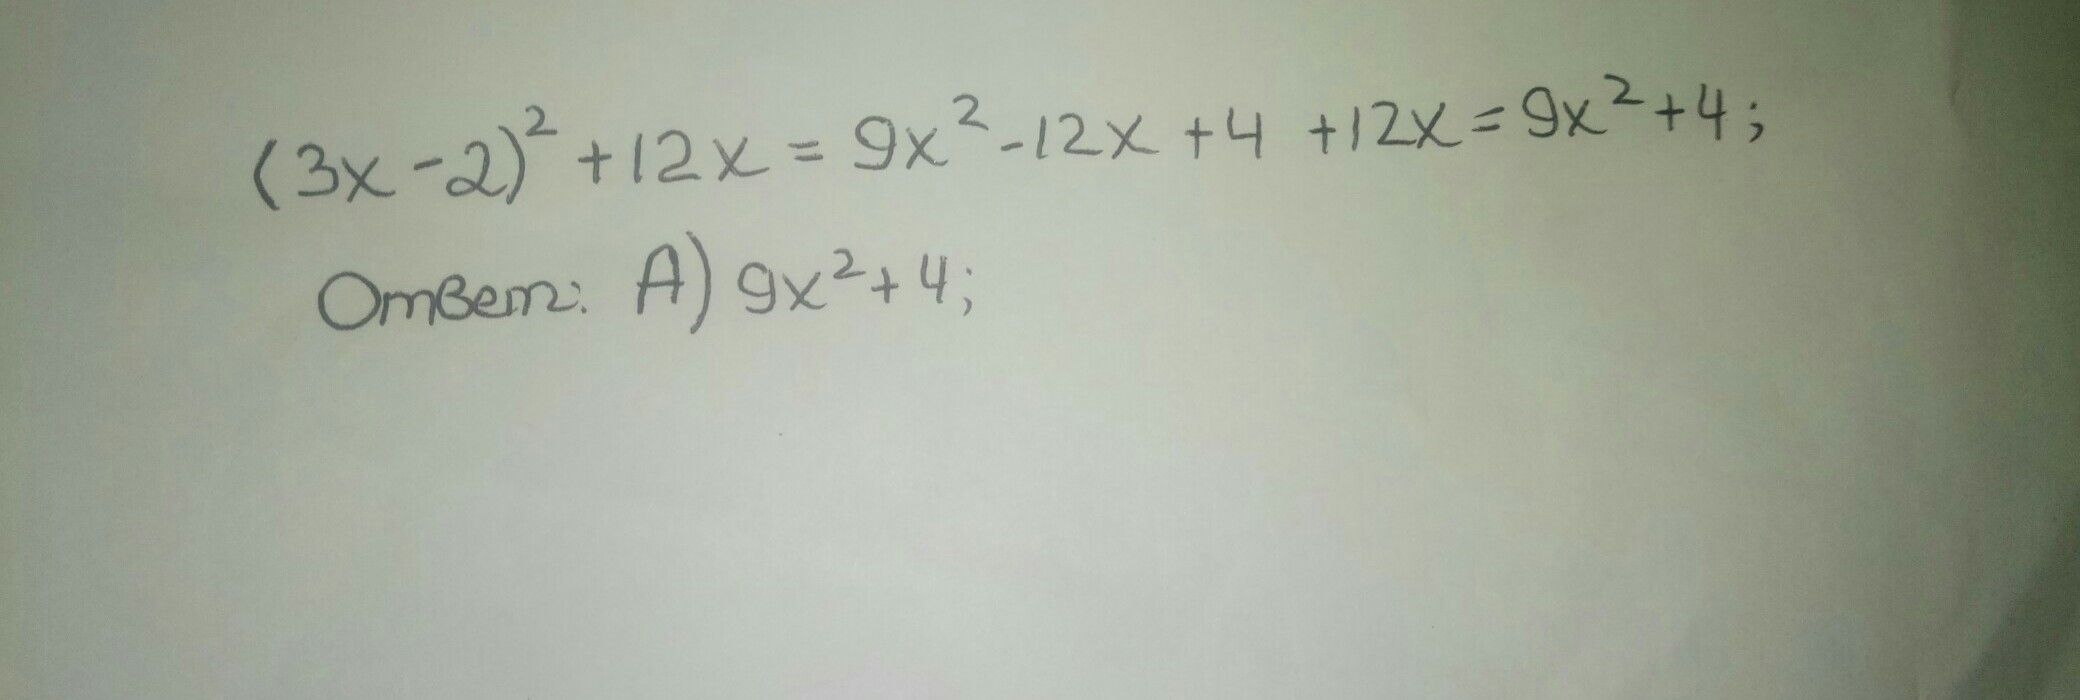 (3x-2)²+12x=9x²-12x+4+12x=9x²+4;
Ответ: А) 9x²+4;